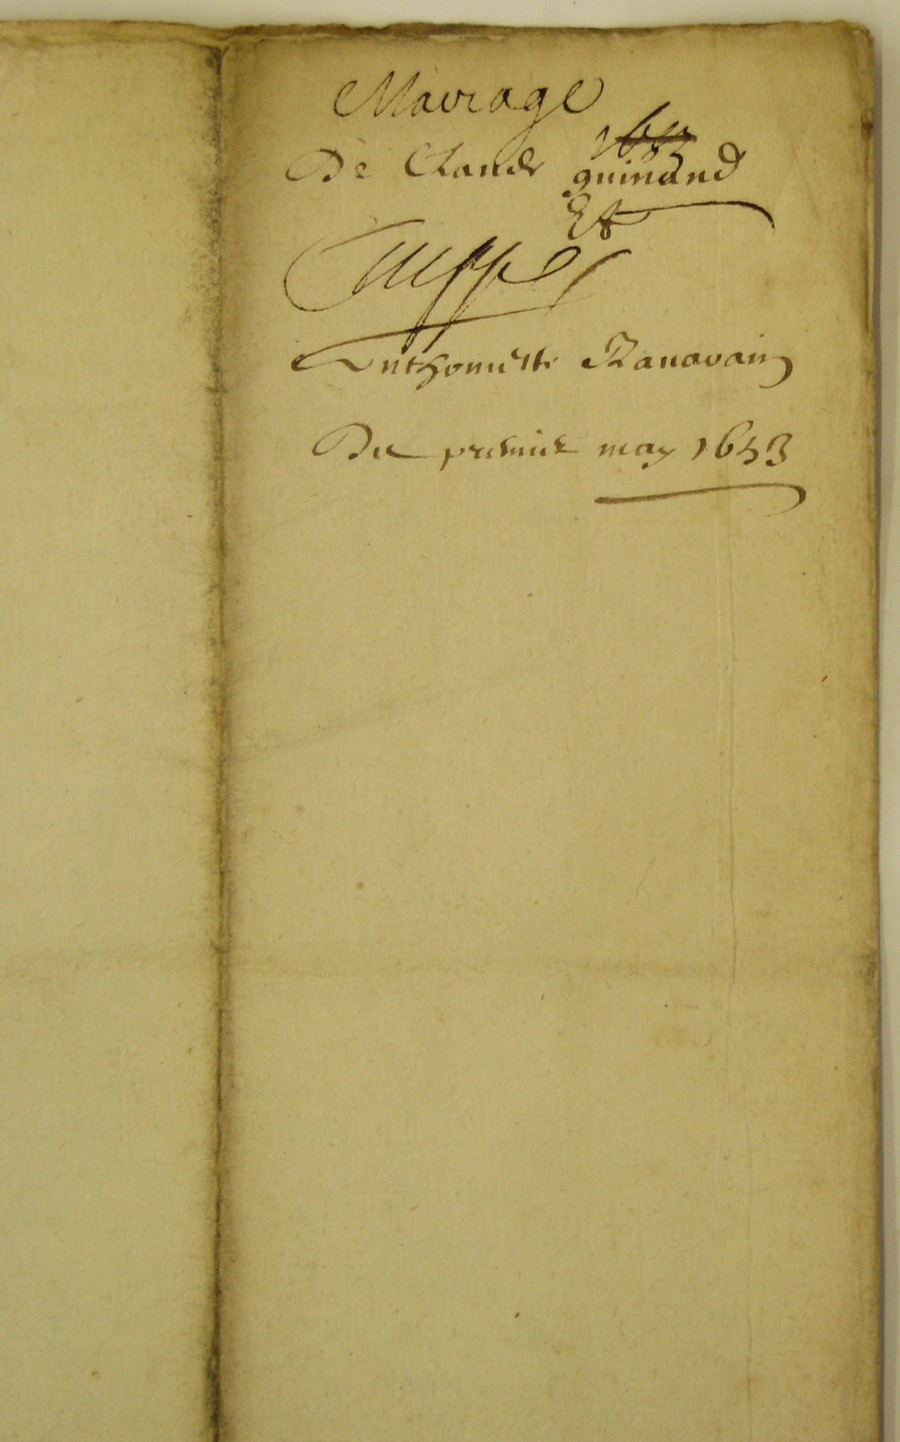 Mariage
1653
De Claude guinand
Et
Anthoinette Ranavain
Du premier may 1653